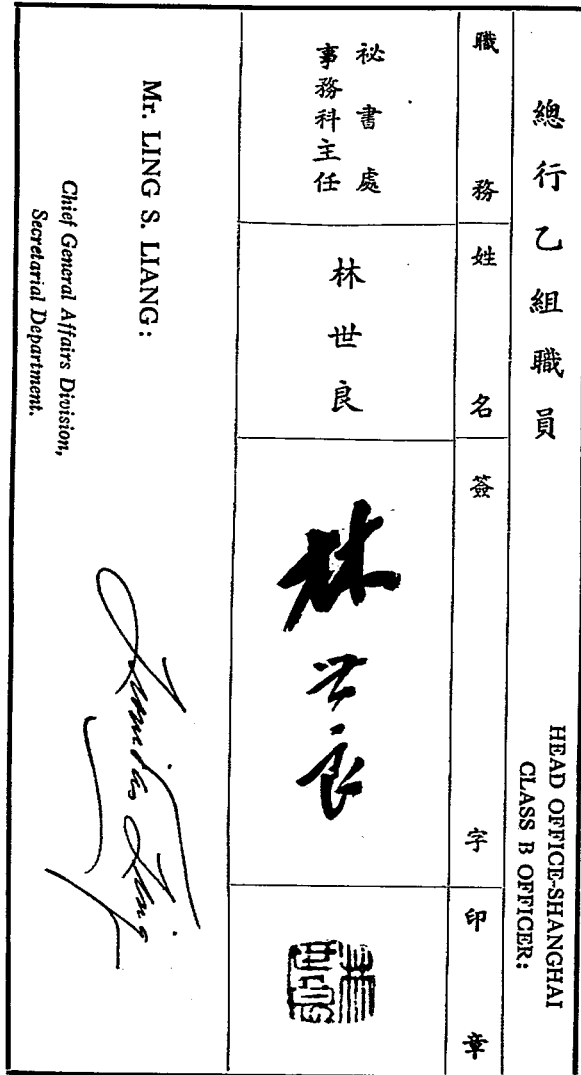 總行乙組職員
HEAD OFFICE-SHANGHAI
CLASS B OFFICER:
職務
姓名
簽字
印章
祕書處
事務科主任
林世良
林世良
林世良
Mr. LING S. LIANG:
Chief General Affairs Division,
Secretarial Department.
Ling